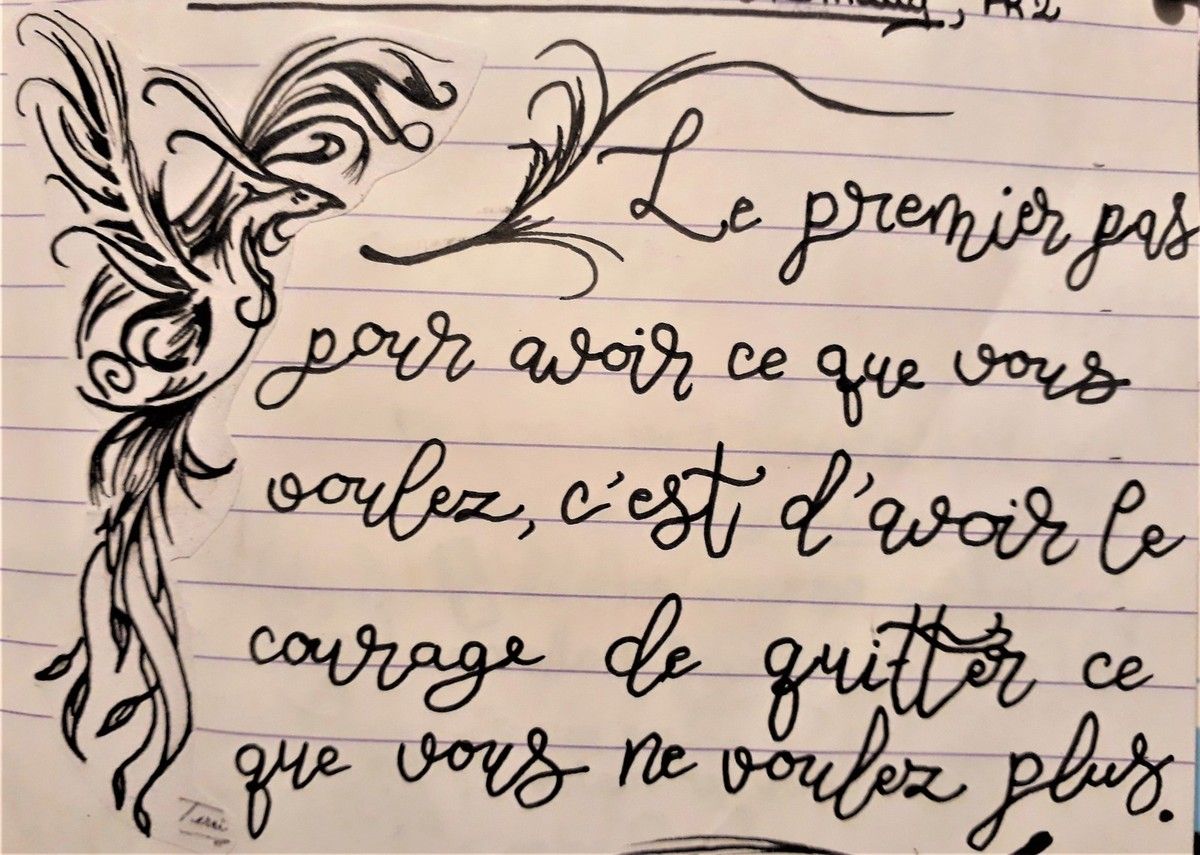 Le premier pas
pour avoir ce que vous
voulez, c'est d'avoir le
courage de quitter ce
que vous ne voulez plus.
Terri